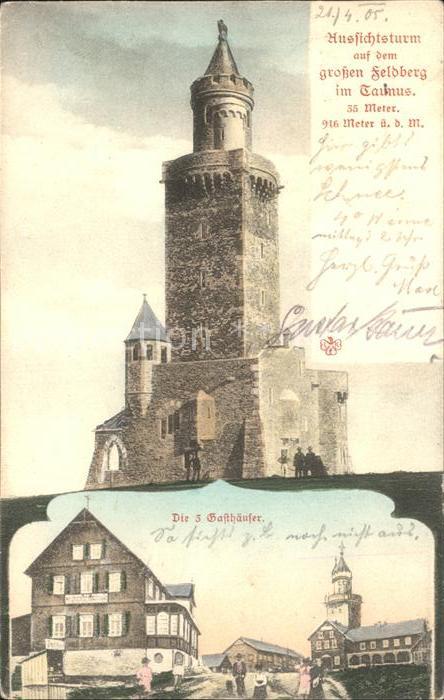 21/4 05.
Aussichtsturm
auf dem
großen Feldberg
im Taunus.
35 Meter.
916 Meter ü. d. M.
Hier gibts
wenigstens
Schnee.
4° Wärme
mittags 2 Uhr
Herzl. Gruß
Max
Gustav
Die 3 Gasthäuser.
So sichts z.b. noch nicht aus.